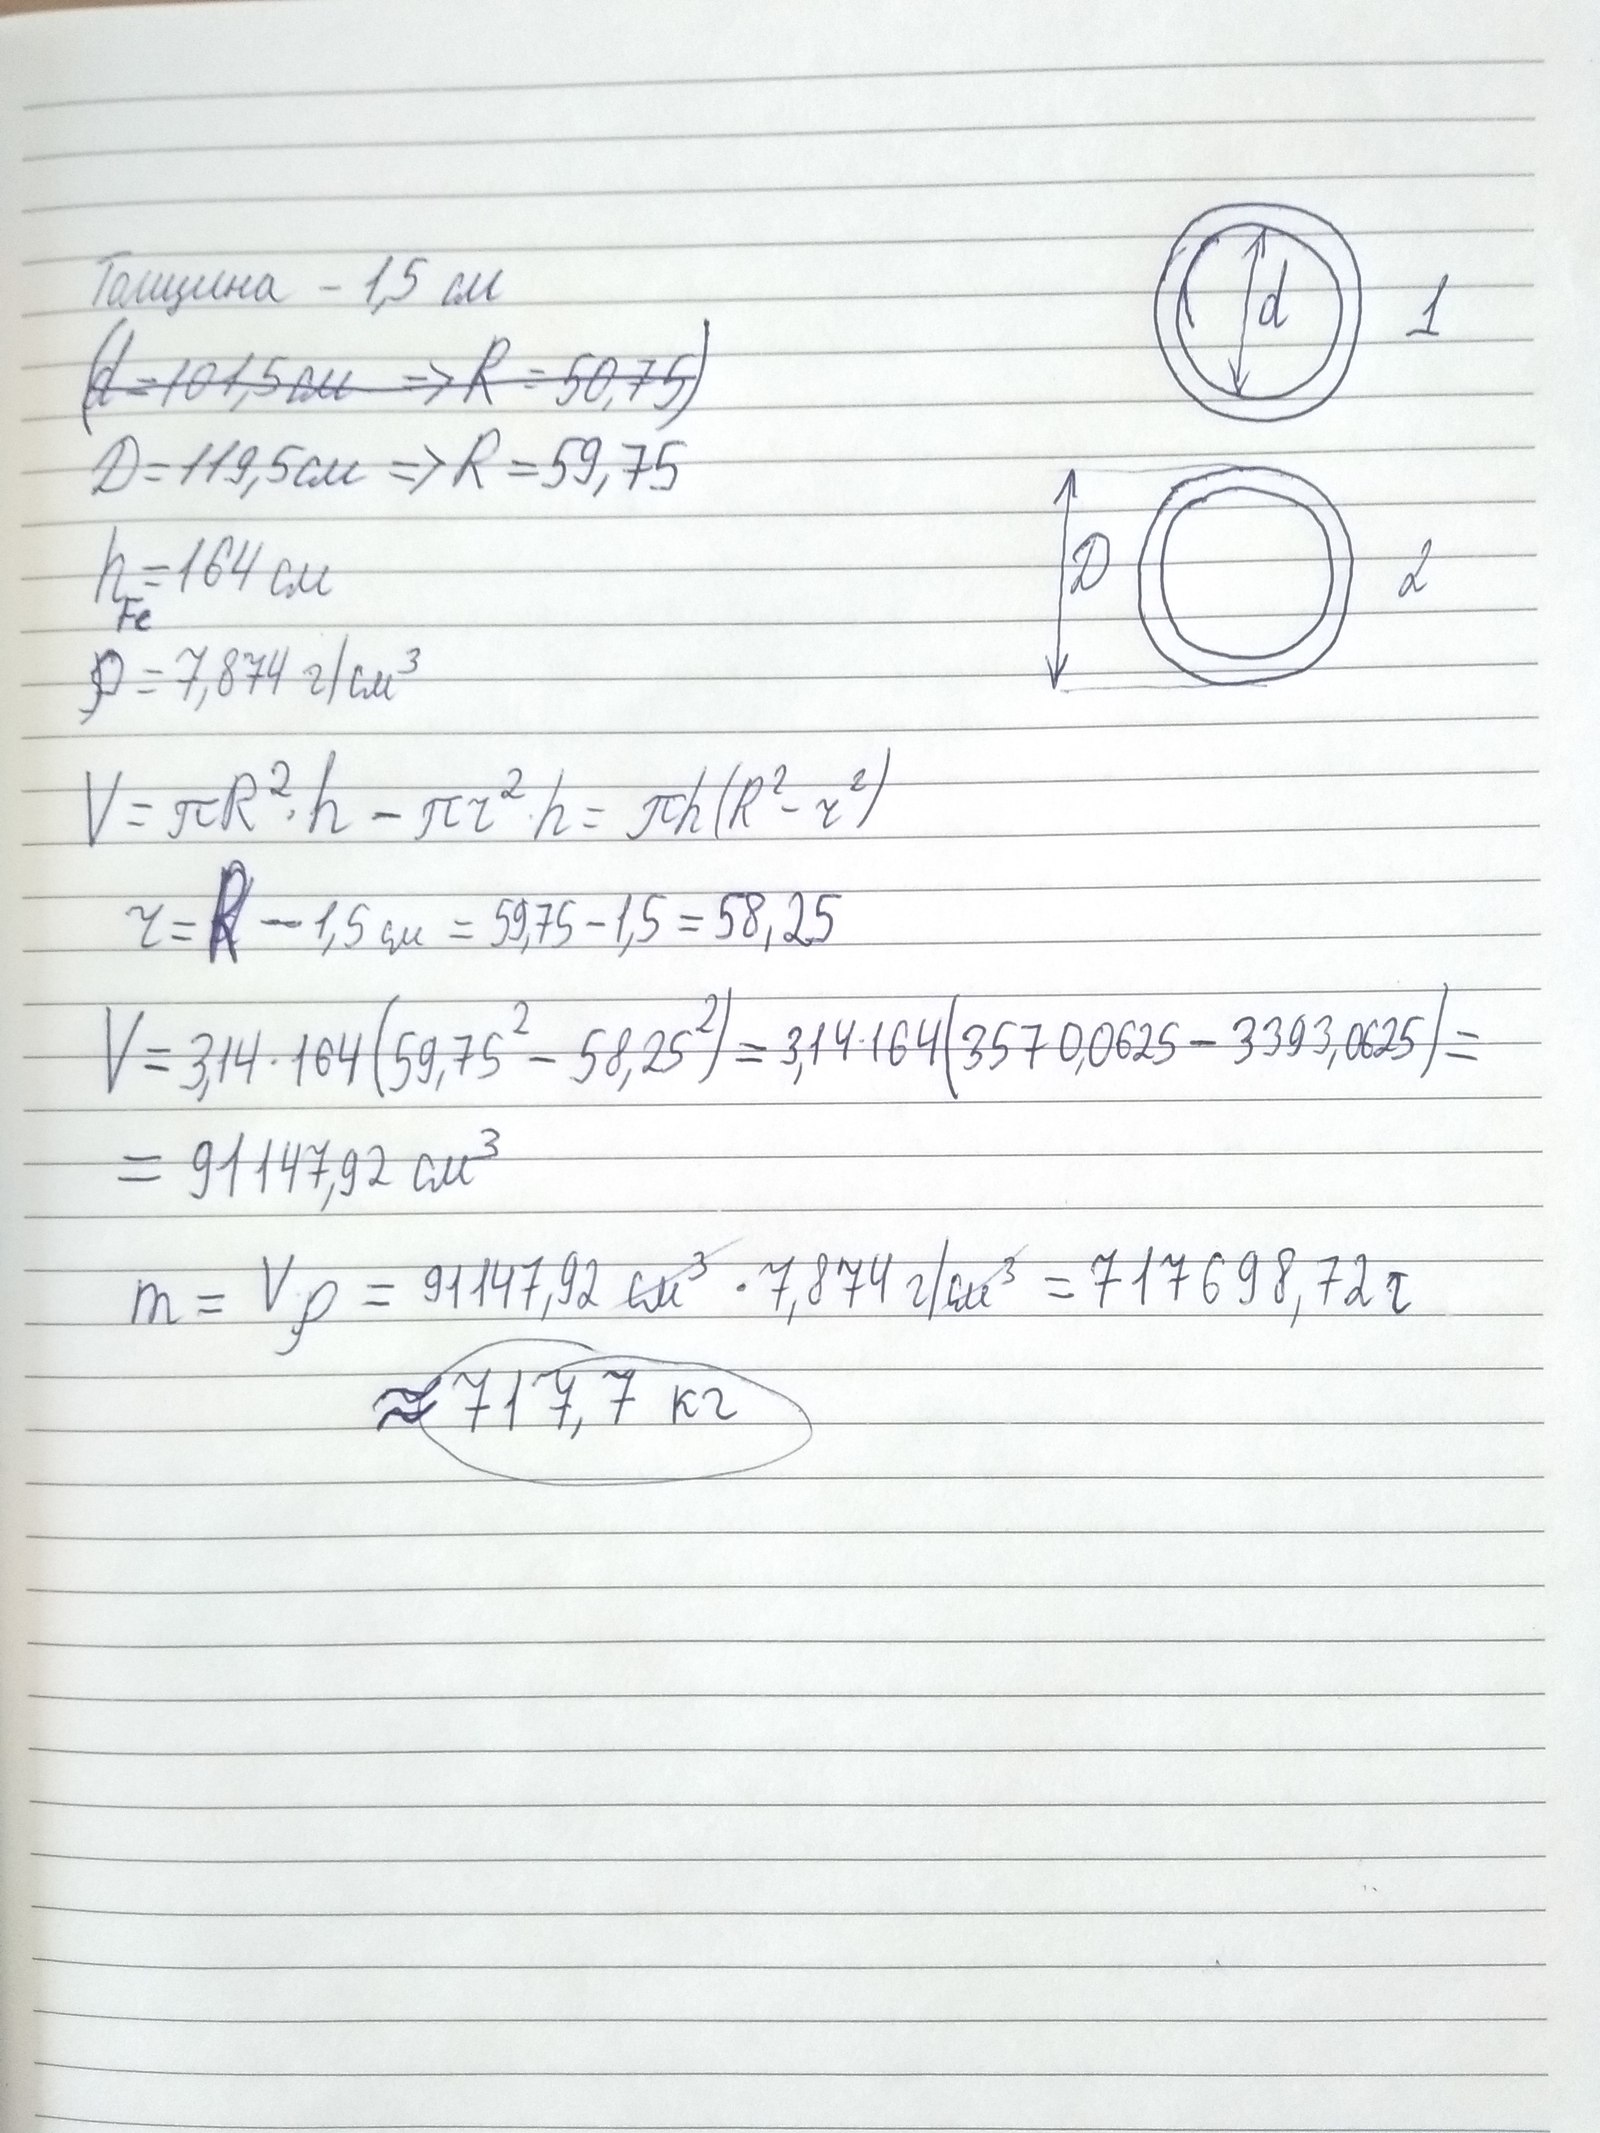 Толщина - 1,5 см
(d = 101,5 см => R = 50,75)
D = 119,5 см => R = 59,75
h = 164 см
Fe
ρ = 7,874 г/см³
V = πR²·h - πr²·h = πh(R² - r²)
r = R - 1,5 см = 59,75 - 1,5 = 58,25
V = 3,14·164(59,75² - 58,25²) = 3,14·164(3570,0625 - 3393,0625) =
= 91147,92 см³
m = Vρ = 91147,92 см³ · 7,874 г/см³ = 717698,72 г
≈ 717,7 кг
d
1
D
2